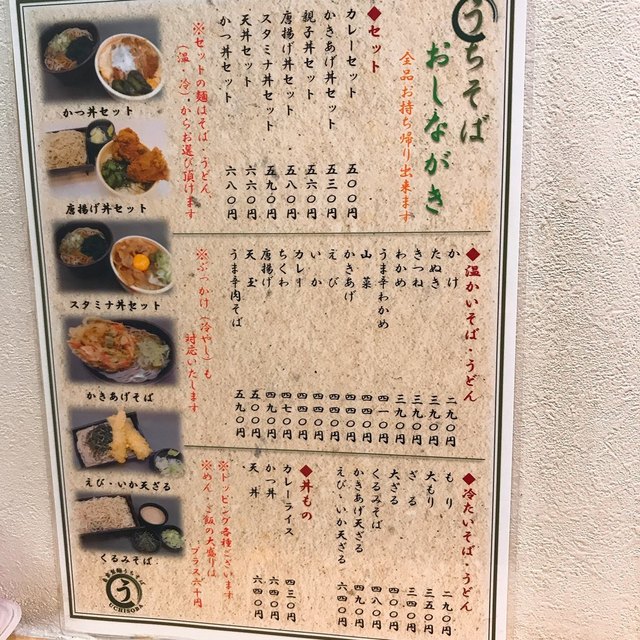 うちそば
おしながき
全品お持ち帰り出来ます
◆セット
カレーセット 五〇〇円
かきあげ丼セット 五三〇円
親子丼セット 五六〇円
唐揚げ丼セット 五八〇円
スタミナ丼セット 五九〇円
天丼セット 六六〇円
かつ丼セット 六八〇円
※セットの麺はそば・うどん、
(温・冷)からお選び頂けます
◆温かいそば・うどん
かけ 二九〇円
たぬき 三九〇円
きつね 三九〇円
わかめ 三九〇円
うま辛わかめ 四一〇円
山菜 四四〇円
かきあげ 四四〇円
えび 四四〇円
いか 四四〇円
カレー 四四〇円
ちくわ 四七〇円
唐揚げ 四九〇円
天玉 五〇〇円
うま辛肉そば 五九〇円
※ぶっかけ(冷やし)も
対応いたします
◆冷たいそば・うどん
もり 二九〇円
大もり 三五〇円
ざる 三四〇円
大ざる 四〇〇円
くるみそば 四八〇円
かきあげ天ざる 四九〇円
えび・いか天ざる 六四〇円
◆丼もの
カレーライス 四三〇円
かつ丼 六四〇円
天丼 六四〇円
※トッピング各種ございます
※めん・ご飯の大盛りは
プラス六十円
かつ丼セット
唐揚げ丼セット
スタミナ丼セット
かきあげそば
えび・いか天ざる
くるみそば
う
UCHISOBA